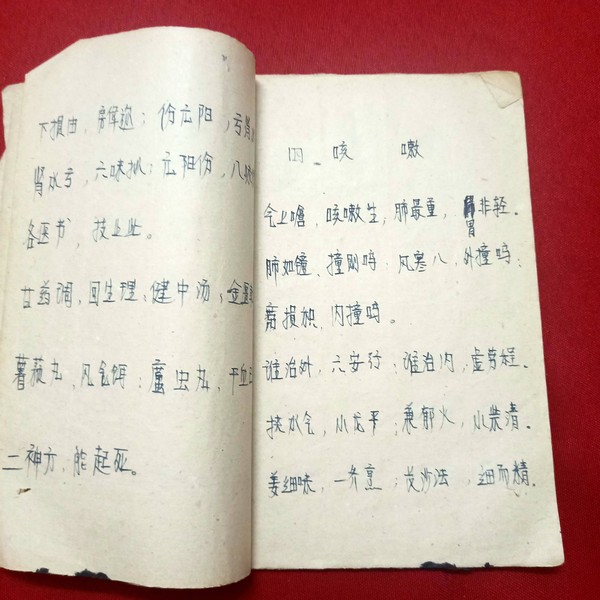 下损由，房帏迩；伤元阳，亏肾
肾水亏，六味拟；元阳伤，八味
各医书，技止此。
甘药调，回生理；健中汤，金匮
薯蓣丸，风气弭；䗪虫丸，干血
二神方，能起死。
四 咳 嗽
气上呛，咳嗽生，肺最重，胃非轻。
肺如鐘，撞则鸣，风寒入，外撞鸣；
痨损积，内撞鸣。
谁治外，六安行；谁治内，虚劳程。
挟水气，小龙平；兼郁火，小柴清。
姜细味，一齐烹；长沙法，细而精。